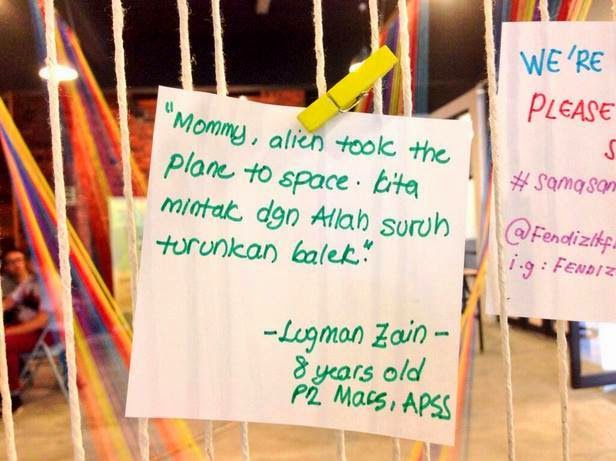 "Mommy, alien took the
plane to space. kita
mintak dgn Allah suruh
turunkan balek."
-Luqman Zain-
8 years old
P2 Mars, APSS
WE'RE
PLEASE
S
# samasam
i.g: FENDIZ